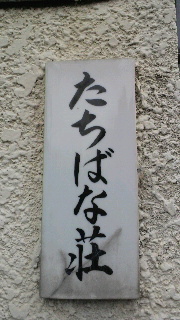 たちばな荘